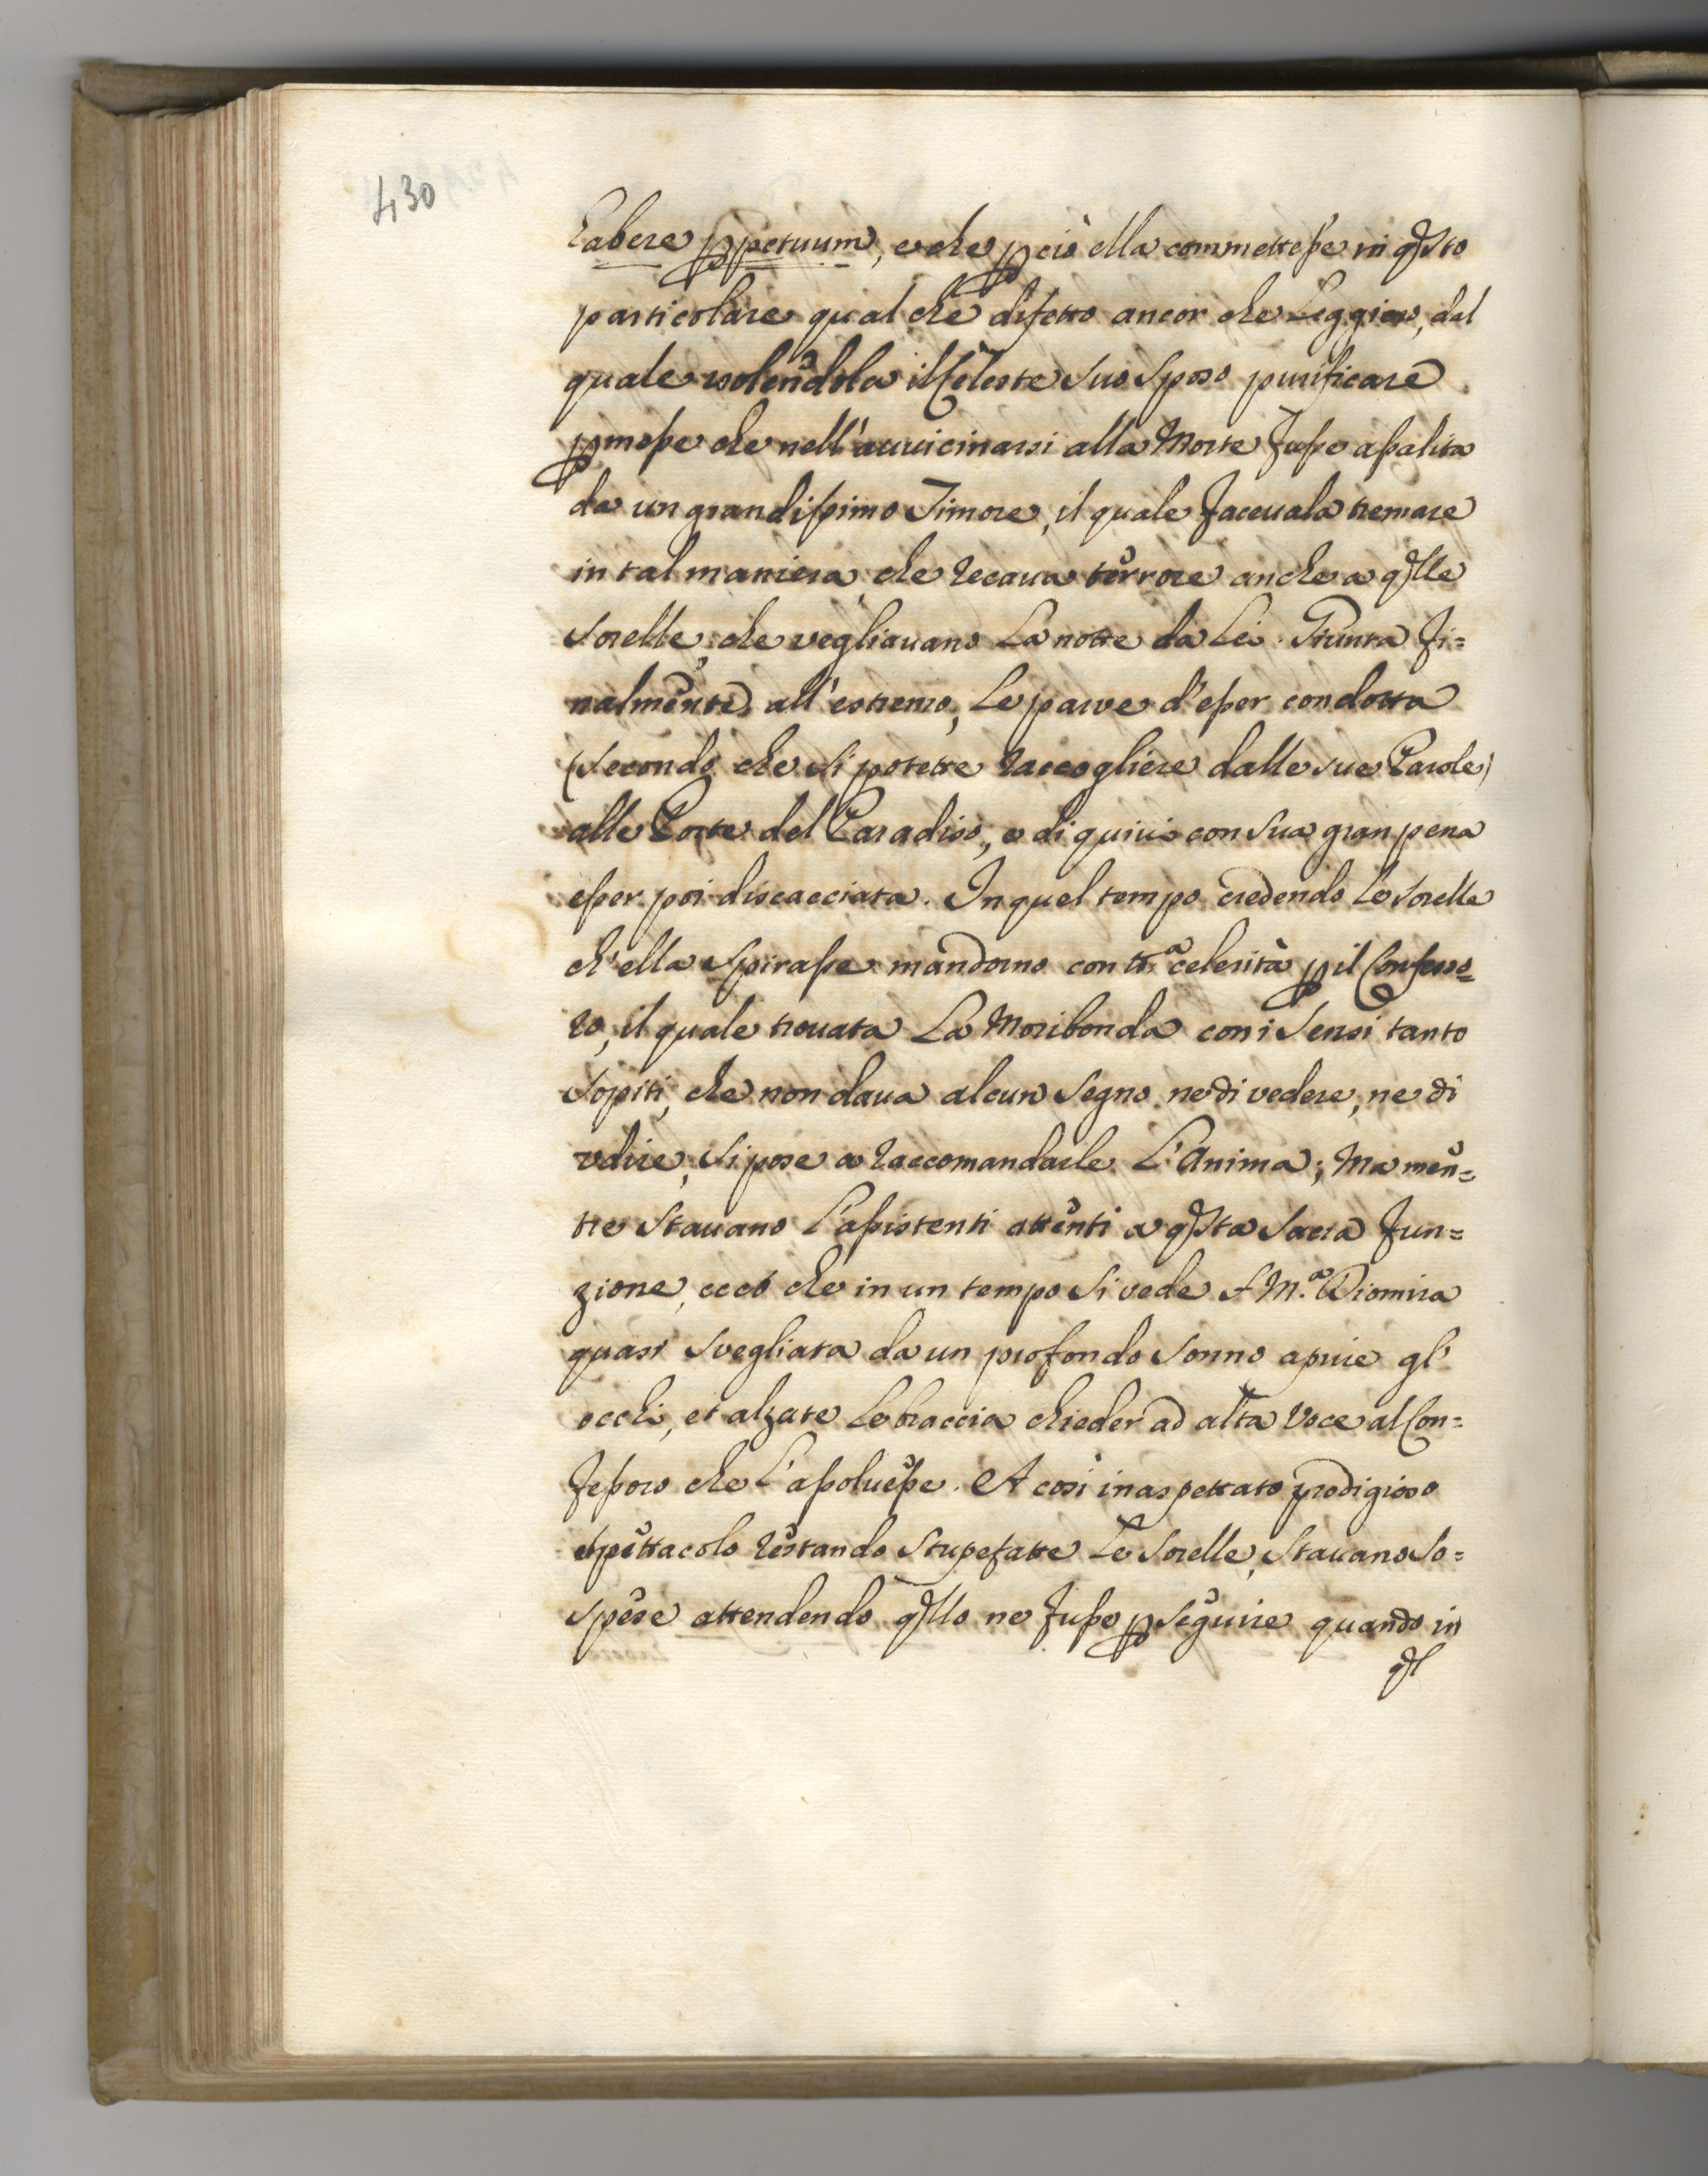 430
habere ꝑpetuum, e che ꝑciò ella commettesse in qsto
particolare qual che difetto ancor che Leggiero, dal
quale volendola il Celeste Suo Sposo purificare
ꝑmesse che nell'auuicinarsi alla Morte fusse assalita
da un grandissimo Timore, il quale faceuala tremare
in tal maniera, che recaua terrore anche a qlle
Sorelle, che vegliauano La notte da Lei. Giunta fi=
nalmente all'estremo, Le parve d'esser condotta
(Secondo che si potette raccogliere dalle sue Parole)
alle Porte del Paradiso, e di quiui con sua gran pena
esser poi discacciata. In quel tempo credendo Le Sorelle
ch'ella Spirasse mandorno con tta celerità ꝑ il Confesso=
ro, il quale trouata La Moribonda con i Sensi tanto
Sopiti, che non daua alcun Segno ne di vedere, ne di
vdire, Si pose a raccomandarle L'Anima; Ma men=
tre Stauano L'assistenti attenti a qsta Sacra fun=
zione, eccò che in un tempo Si vede S. M.a Diomira
quasi Svegliata da un profondo Sonno aprire gl'
occhi, et alzate Le braccia chieder ad alta Voce al Con=
fessoro che L'assoluesse. A così inaspettato prodigioso
Spettacolo restando Stupefatte Le Sorelle, Stauano So=
spese attendendo qllo ne fusse ꝑ Seguire quando in
ql